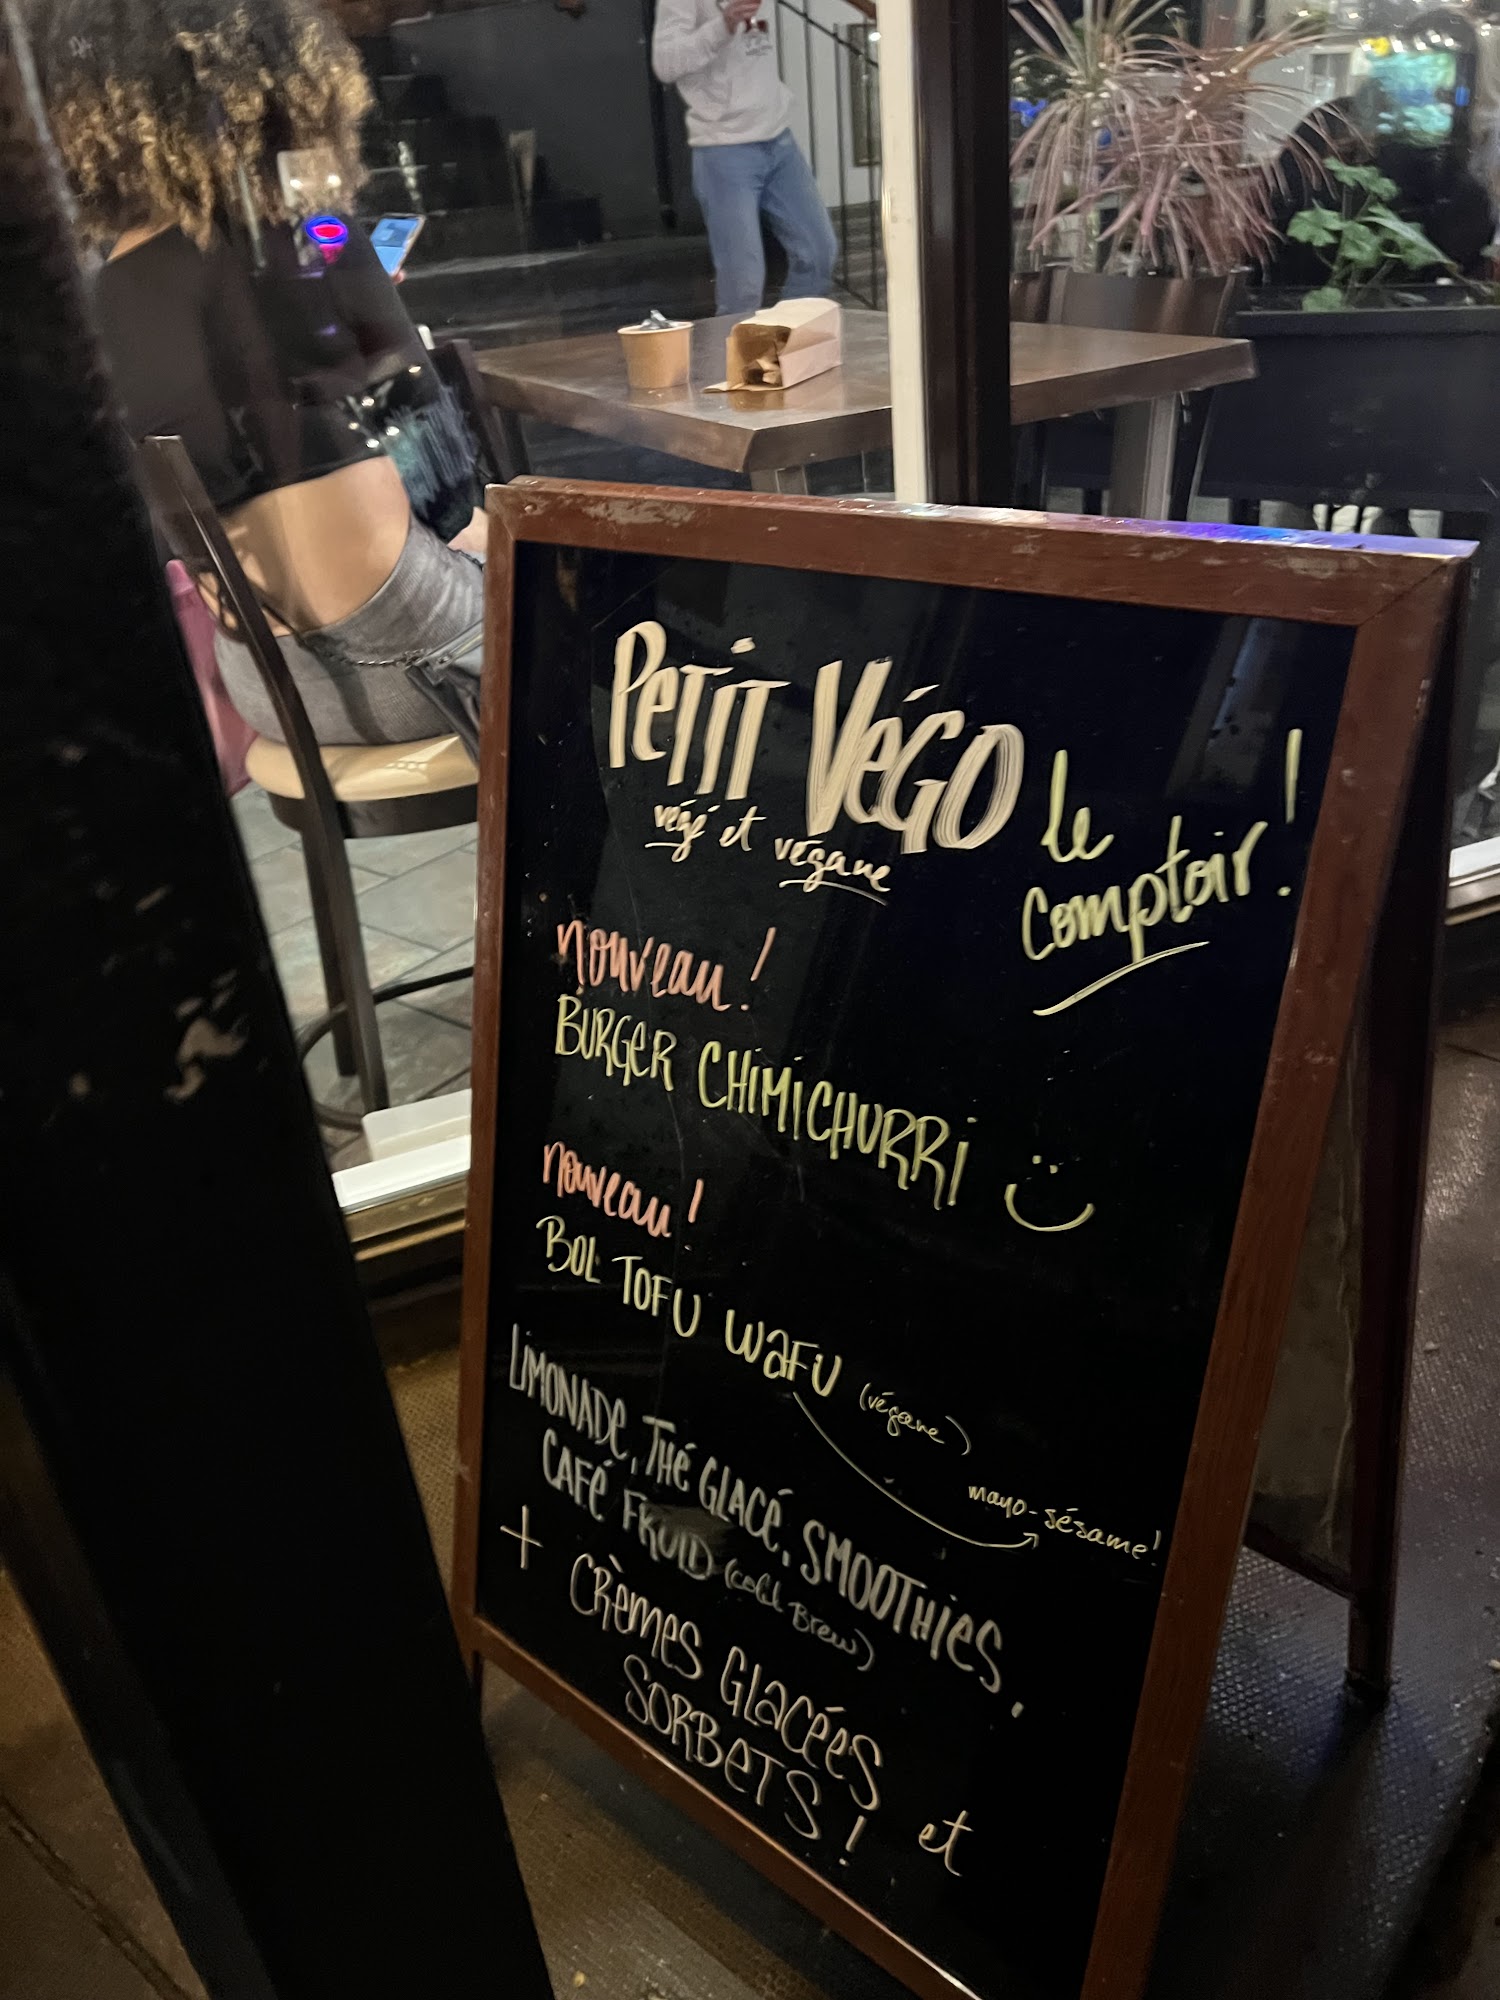 PETIT VÉGO
végé et végane
le
comptoir!
nouveau!
BURGER CHIMICHURRI
nouveau!
BOL TOFU WAFU (végane)
mayo-sésame!
LIMONADE, THÉ GLACÉ, SMOOTHIES,
CAFÉ FROID (cold Brew)
+ CRÈMES GLACÉES et
SORBETS!